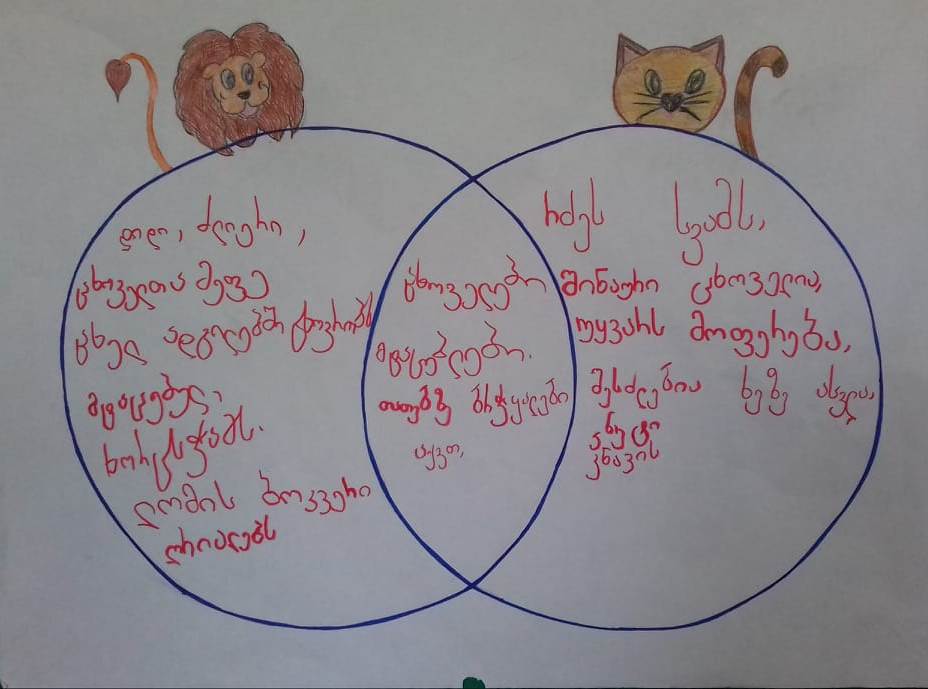 დიდი, ძლიერი,
ცხოველთა მეფე
ცხელ ადგილებში ცხოვრობს
მტაცებელი,
ხორცსჭამს.
ლომის ბოკვერი
ღრიალებს
ცხოველები
მტაცებლები.
თათებზე ბრჭყალები
აქვთ,
რძეს სვამს,
შინაური ცხოველია,
უყვარს მოფერება,
შეუძლებია ხეზე ასვლა,
კნუტი
კნავის